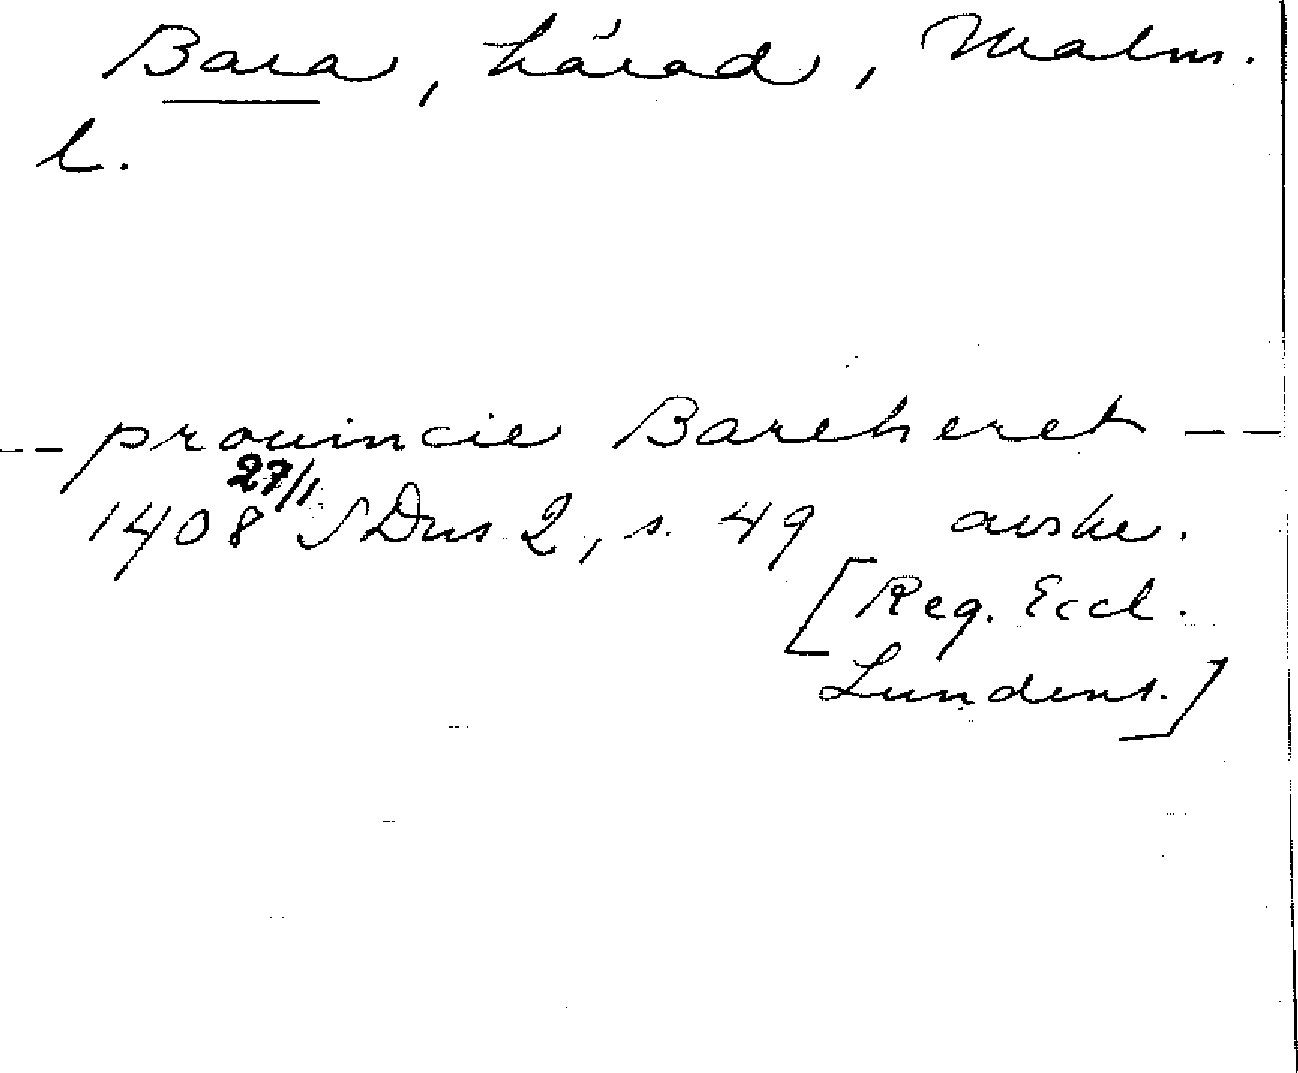 Bara, härad, Malm.
l.
-- prouincie Bareheret --
27/1
1408 SDns 2, s. 49 avskr.
[Reg. Eccl.
Lundens.]